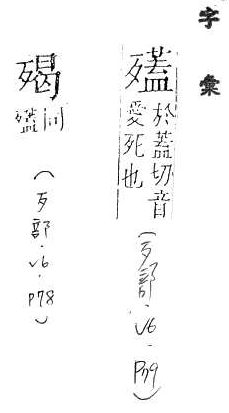 字彙
於蓋切音
愛死也
(歹部.V6.P79)
同
(歹部.V6.P78)